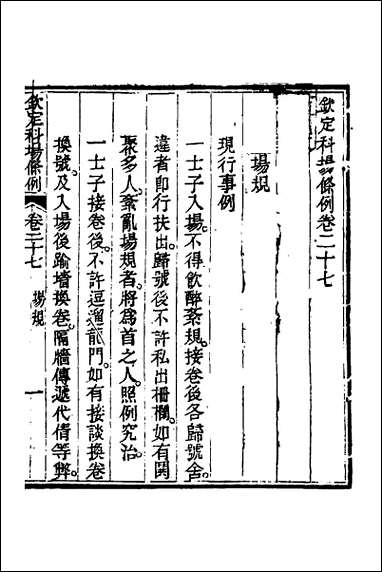 欽定科場條例卷二十七
場規
現行事例
一士子入場。不得飲醉紊規。接卷後各歸號舍。
違者卽行扶出。歸號後不許私出柵欄。如有鬨
聚多人。紊亂場規者。將爲首之人。照例究治。
一士子接卷後。不許逗遛龍門。如有接談換卷
換號。及入場後踰墻換卷。隔牆傳遞代倩等弊。
欽定科場條例 卷二十七 場規 一